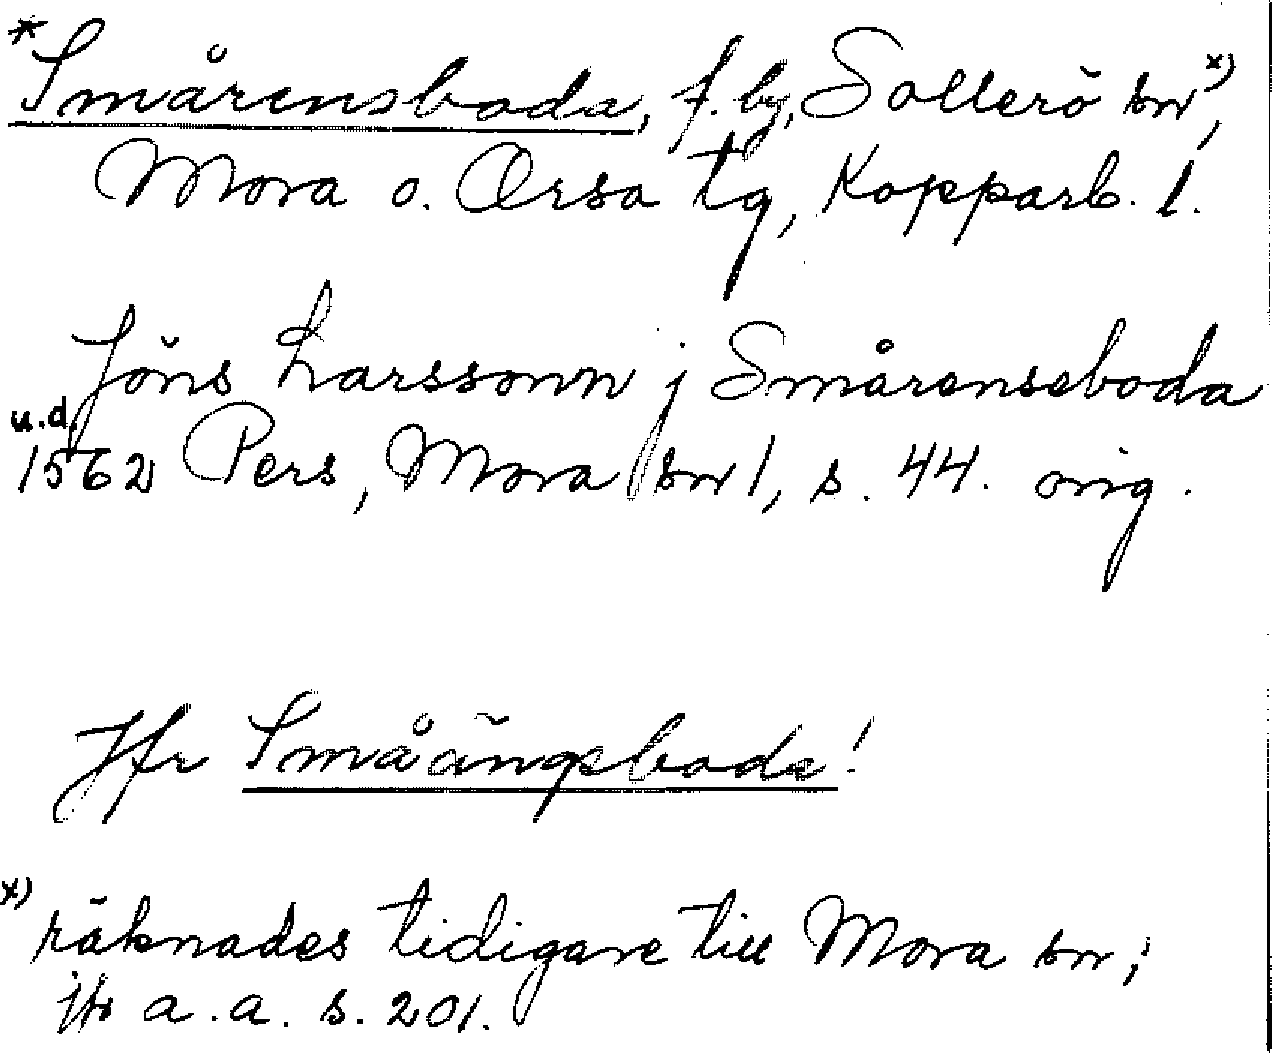 *Smårensboda, f. by, Sollerö sn x),
Mora o. Orsa tg, Kopparb. l.
Jöns Larssonn j Smårenseboda
u.d.
1562 Pers, Mora sn 1, s. 44. orig.
Jfr Småängsboda!
x) räknades tidigare till Mora sn;
jfr a.a. s. 201.